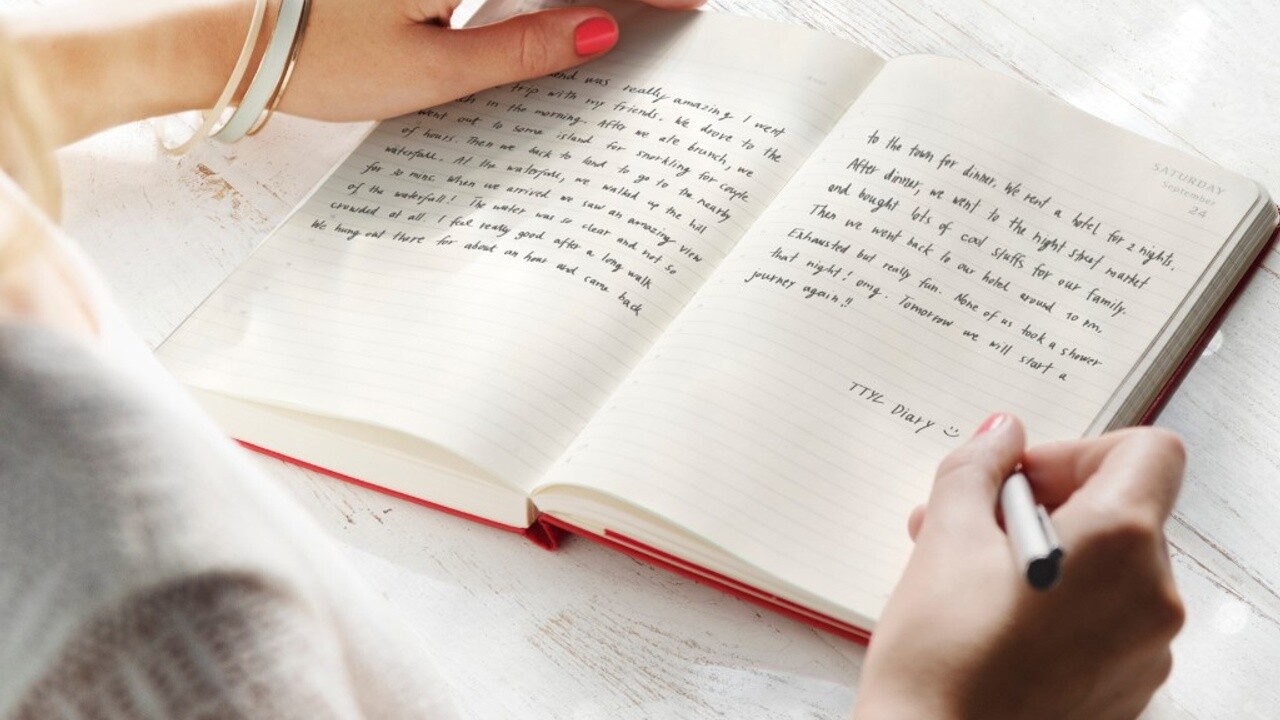 end was really amazing! I went
trip with my friends. We drove to the
in the morning. After we ate brunch, we
went out to some island for snorkling for couple
of hours. Then we back to land to go to the nearby
waterfall. At the waterfall, we walked up the hill
for 30 mins. When we arrived, we saw an amazing view
of the waterfall! The water was so clear and not so
crowded at all. I feel really good after a long walk
We hung out there for about an hour and came back
to the town for dinner. We rent a hotel for 2 nights.
After dinner, we went to the night street market
and bought lots of cool stuffs for our family.
Then we went back to our hotel around 10 pm.
Exhausted but really fun. None of us took a shower
that night! omg. Tomorrow we will start a
journey again!!
TTYL Diary
SATURDAY
September
24